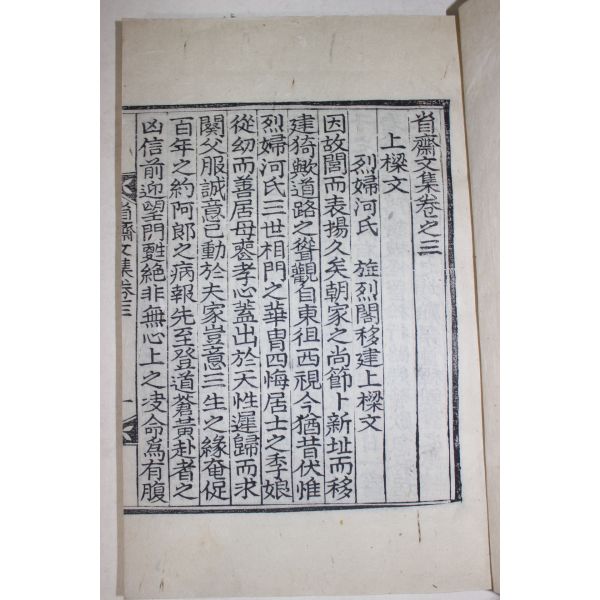 省齋文集卷之三
上樑文
烈婦河氏 旌烈閣移建上樑文
因故閭而表揚久矣朝家之尚節卜新址而移
建猗歟道路之聳觀自東徂西視今猶昔伏惟
烈婦河氏三世相門之華冑四悔居士之季娘
從幼而善居母喪孝心蓋出於天性遲歸而求
闕父服誠意已動於夫家豈意三生之緣奄促
百年之約阿郞之病報先至登道蒼黃赴者之
凶信前迎望門甦絶非無心上之决命爲有腹
省齋文集卷三 一